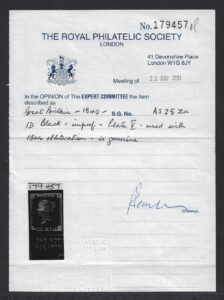 No. 179457
THE ROYAL PHILATELIC SOCIETY
LONDON
41 Devonshire Place
London W1G 6JY
Meeting of
In the OPINION of The EXPERT COMMITTEE the item
described as
Great Britain - 1840 - S.G. No. AS25
1D Black - imperf - Plate V - used with
obliteration - is genuine.
179457
Chairman